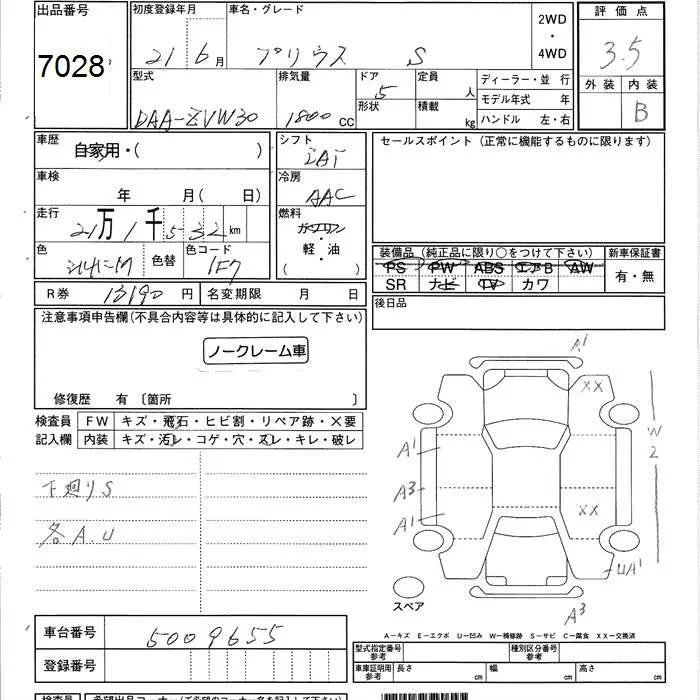 出品番号 初度登録年月 車名・グレード 2WD ・ 4WD 評価点
7028 21年6月 プリウス S 3.5
型式 排気量 ドア 定員 ディーラー・並行 外装 内装
DAA-ZVW30 1800cc 5 人 モデル年式 年 B
形状 積載 kg ハンドル 左・右
車歴 自家用・( ) シフト IAT セールスポイント (正常に機能するものに限ります)
車検 年 月 (日) 冷房 AAC
走行 21万1千532km 燃料 ガソリン ・ 軽・油 ( )
色 シルバーM 色替 色コード 1F7
装備品 (純正品に限り○をつけて下さい) 新車保証書
PS PW ABS エアB AW 有・無
SR ナビ TV カワ
R券 13190円 名変期限 月 日 後日品
注意事項申告欄(不具合内容等は具体的に記入して下さい)
ノークレーム車
修復歴 有 〔箇所 〕
検査員 FW キズ・飛石・ヒビ割・リペア跡・×要
記入欄 内装 キズ・汚レ・コゲ・穴・スレ・キレ・破レ
下廻りS
各A.U
A1
XX
A1
W2
A3
A1
XX
UA1
スペア
A3
A-キズ E-エクボ U-凹み W-補修跡 S-サビ C-腐食 XX-交換済
車台番号 5009655
登録番号
型式指定番号 参考 種別区分番号 参考
車庫証明用 参考 長さ cm 幅 cm 高さ cm
検査員 希望出品コーナー(ご希望のコーナー名を記入下さい)